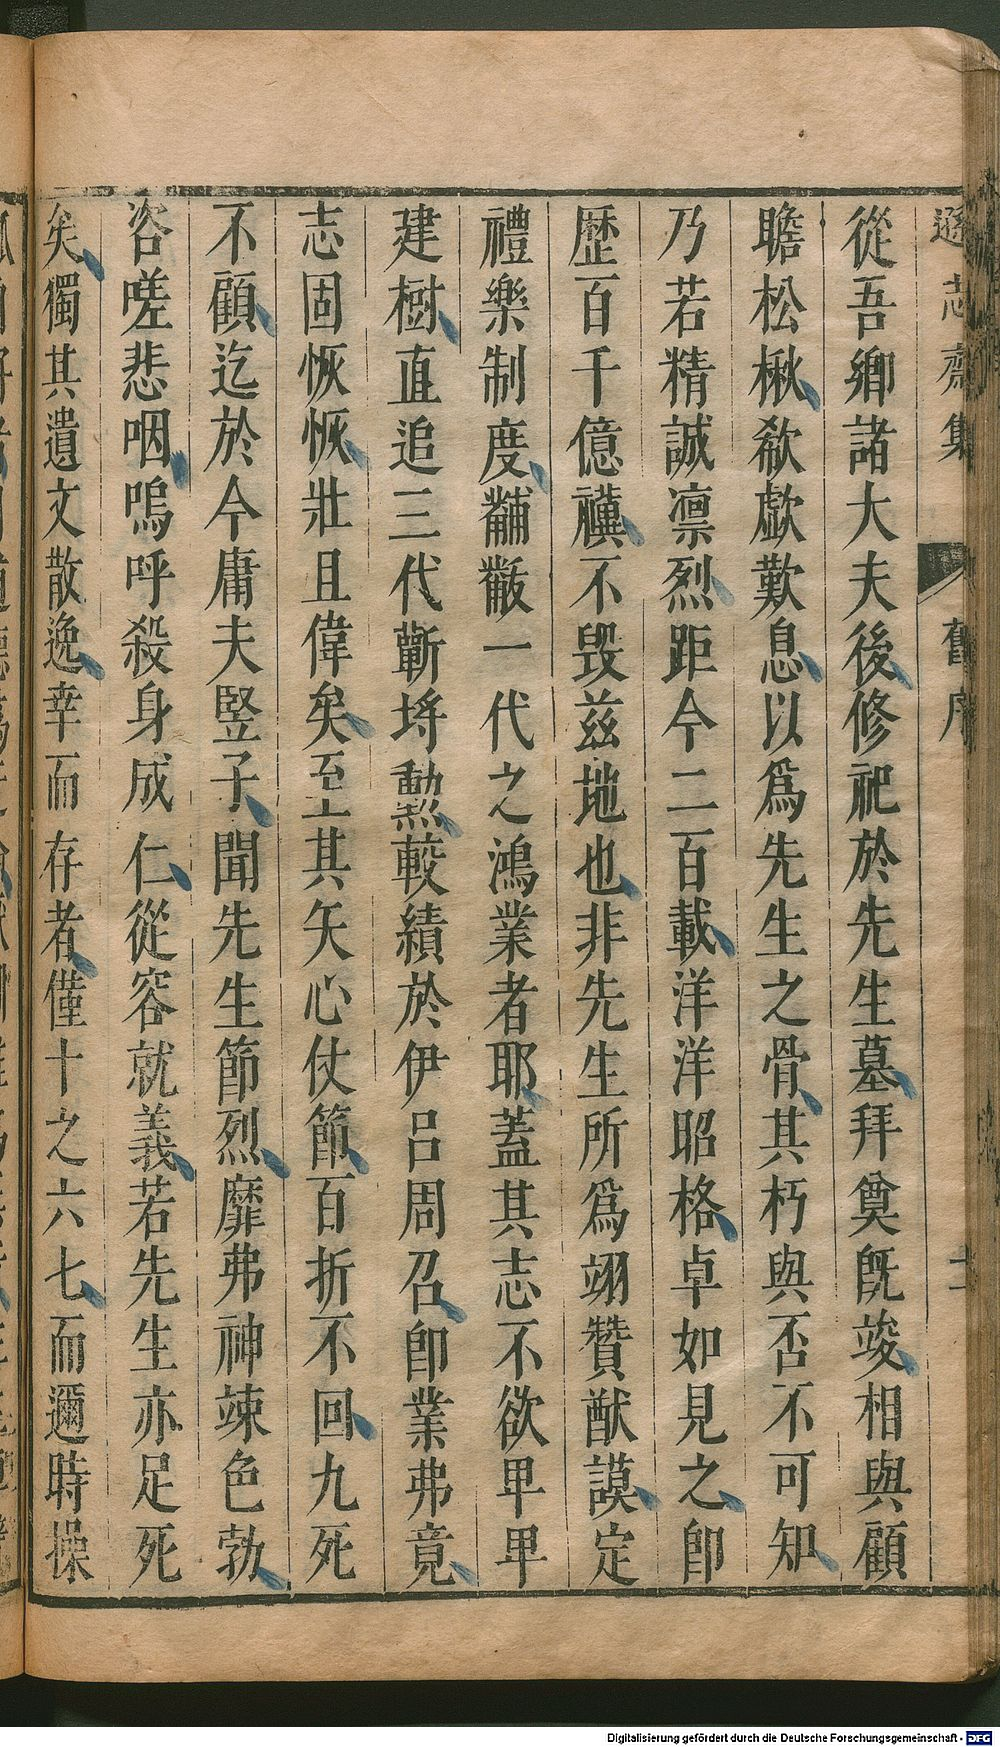 遜志齋集 舊序
從吾鄉諸大夫後修祀於先生墓拜奠旣竣相與顧
瞻松楸欷歔歎息以爲先生之骨其朽與否不可知
乃若精誠凛烈距今二百載洋洋昭格卓如見之卽
歷百千億禩不毀茲地也非先生所爲翊贊猷謨定
禮樂制度黼黻一代之鴻業者耶蓋其志不欲卑卑
建樹直追三代蘄埓勳較績於伊吕周召卽業弗竟
志固恢恢壯且偉矣至其矢心仗節百折不回九死
不顧迄於今庸夫竪子聞先生節烈靡弗神竦色勃
咨嗟悲咽嗚呼殺身成仁從容就義若先生亦足死
矣獨其遺文散逸幸而存者僅十之六七而邇時操
Digitalisierung gefördert durch die Deutsche Forschungsgemeinschaft - DFG